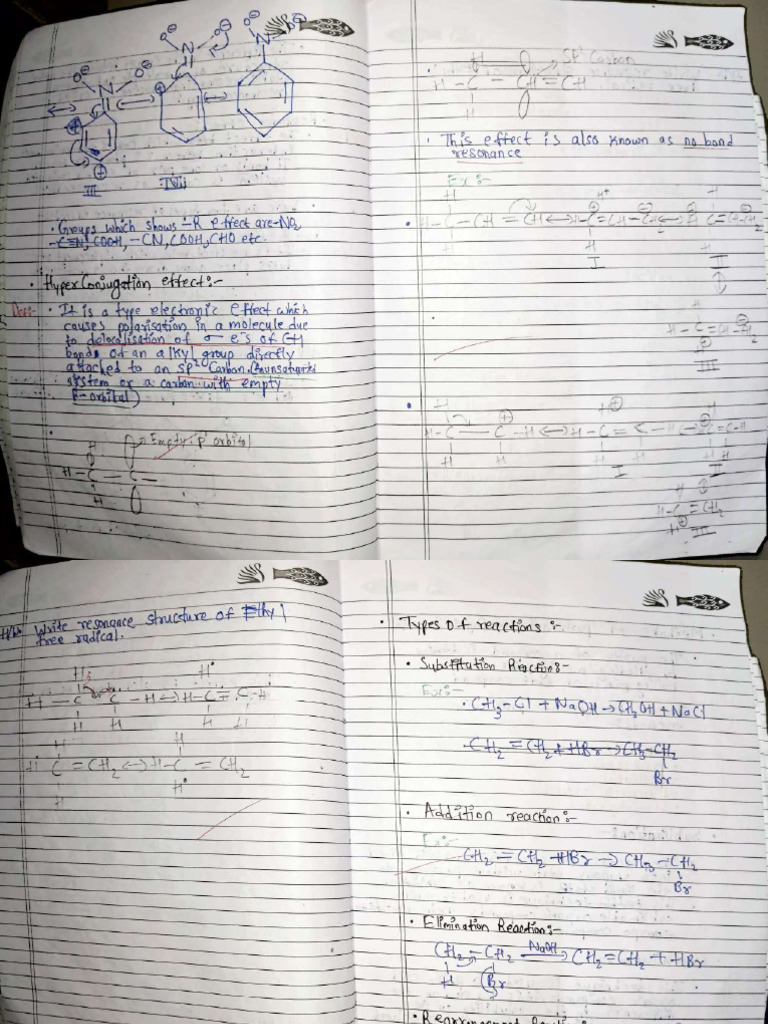 III
IVii
• Groups which shows -R effect are -NO2
-C≡N, COOH, -CN, COOH, CHO etc.
• HyperConjugation effect:-
Def:- • It is a type electronic effect which
causes polarisation in a molecule due
to delocalisation of σ e's of C-H
bonds of an alkyl group directly
attached to an sp2 Carbon. (
system or a carbon with empty
P-orbital)
Empty 'p' orbital
H
H-C-C-
H
H
sp2 Carbon
H-C-CH=CH
H
• This effect is also known as no bond
resonance
Ex:-
H
H-C-CH=CH
H
I
II
H-C=CH-CH2
III
H
H-C-C-H
H H
I
II
H
H-C=CH2
H
III
H/W Write resonance structure of Ethyl
free radical.
H
H-C-C-H
H H
H
C=CH2 ↔ H-C=CH2
H
• Types of reactions:-
• Substitution Reaction:-
Ex:-
• CH3-Cl + NaOH → CH3OH + NaCl
• CH2=CH2 + HBr → CH3-CH2
Br
• Addition reaction:-
Ex:-
CH2=CH2 + HBr → CH3-CH2
Br
• Elimination Reaction:-
CH2-CH2 NaOH→ CH2=CH2 + HBr
H Br